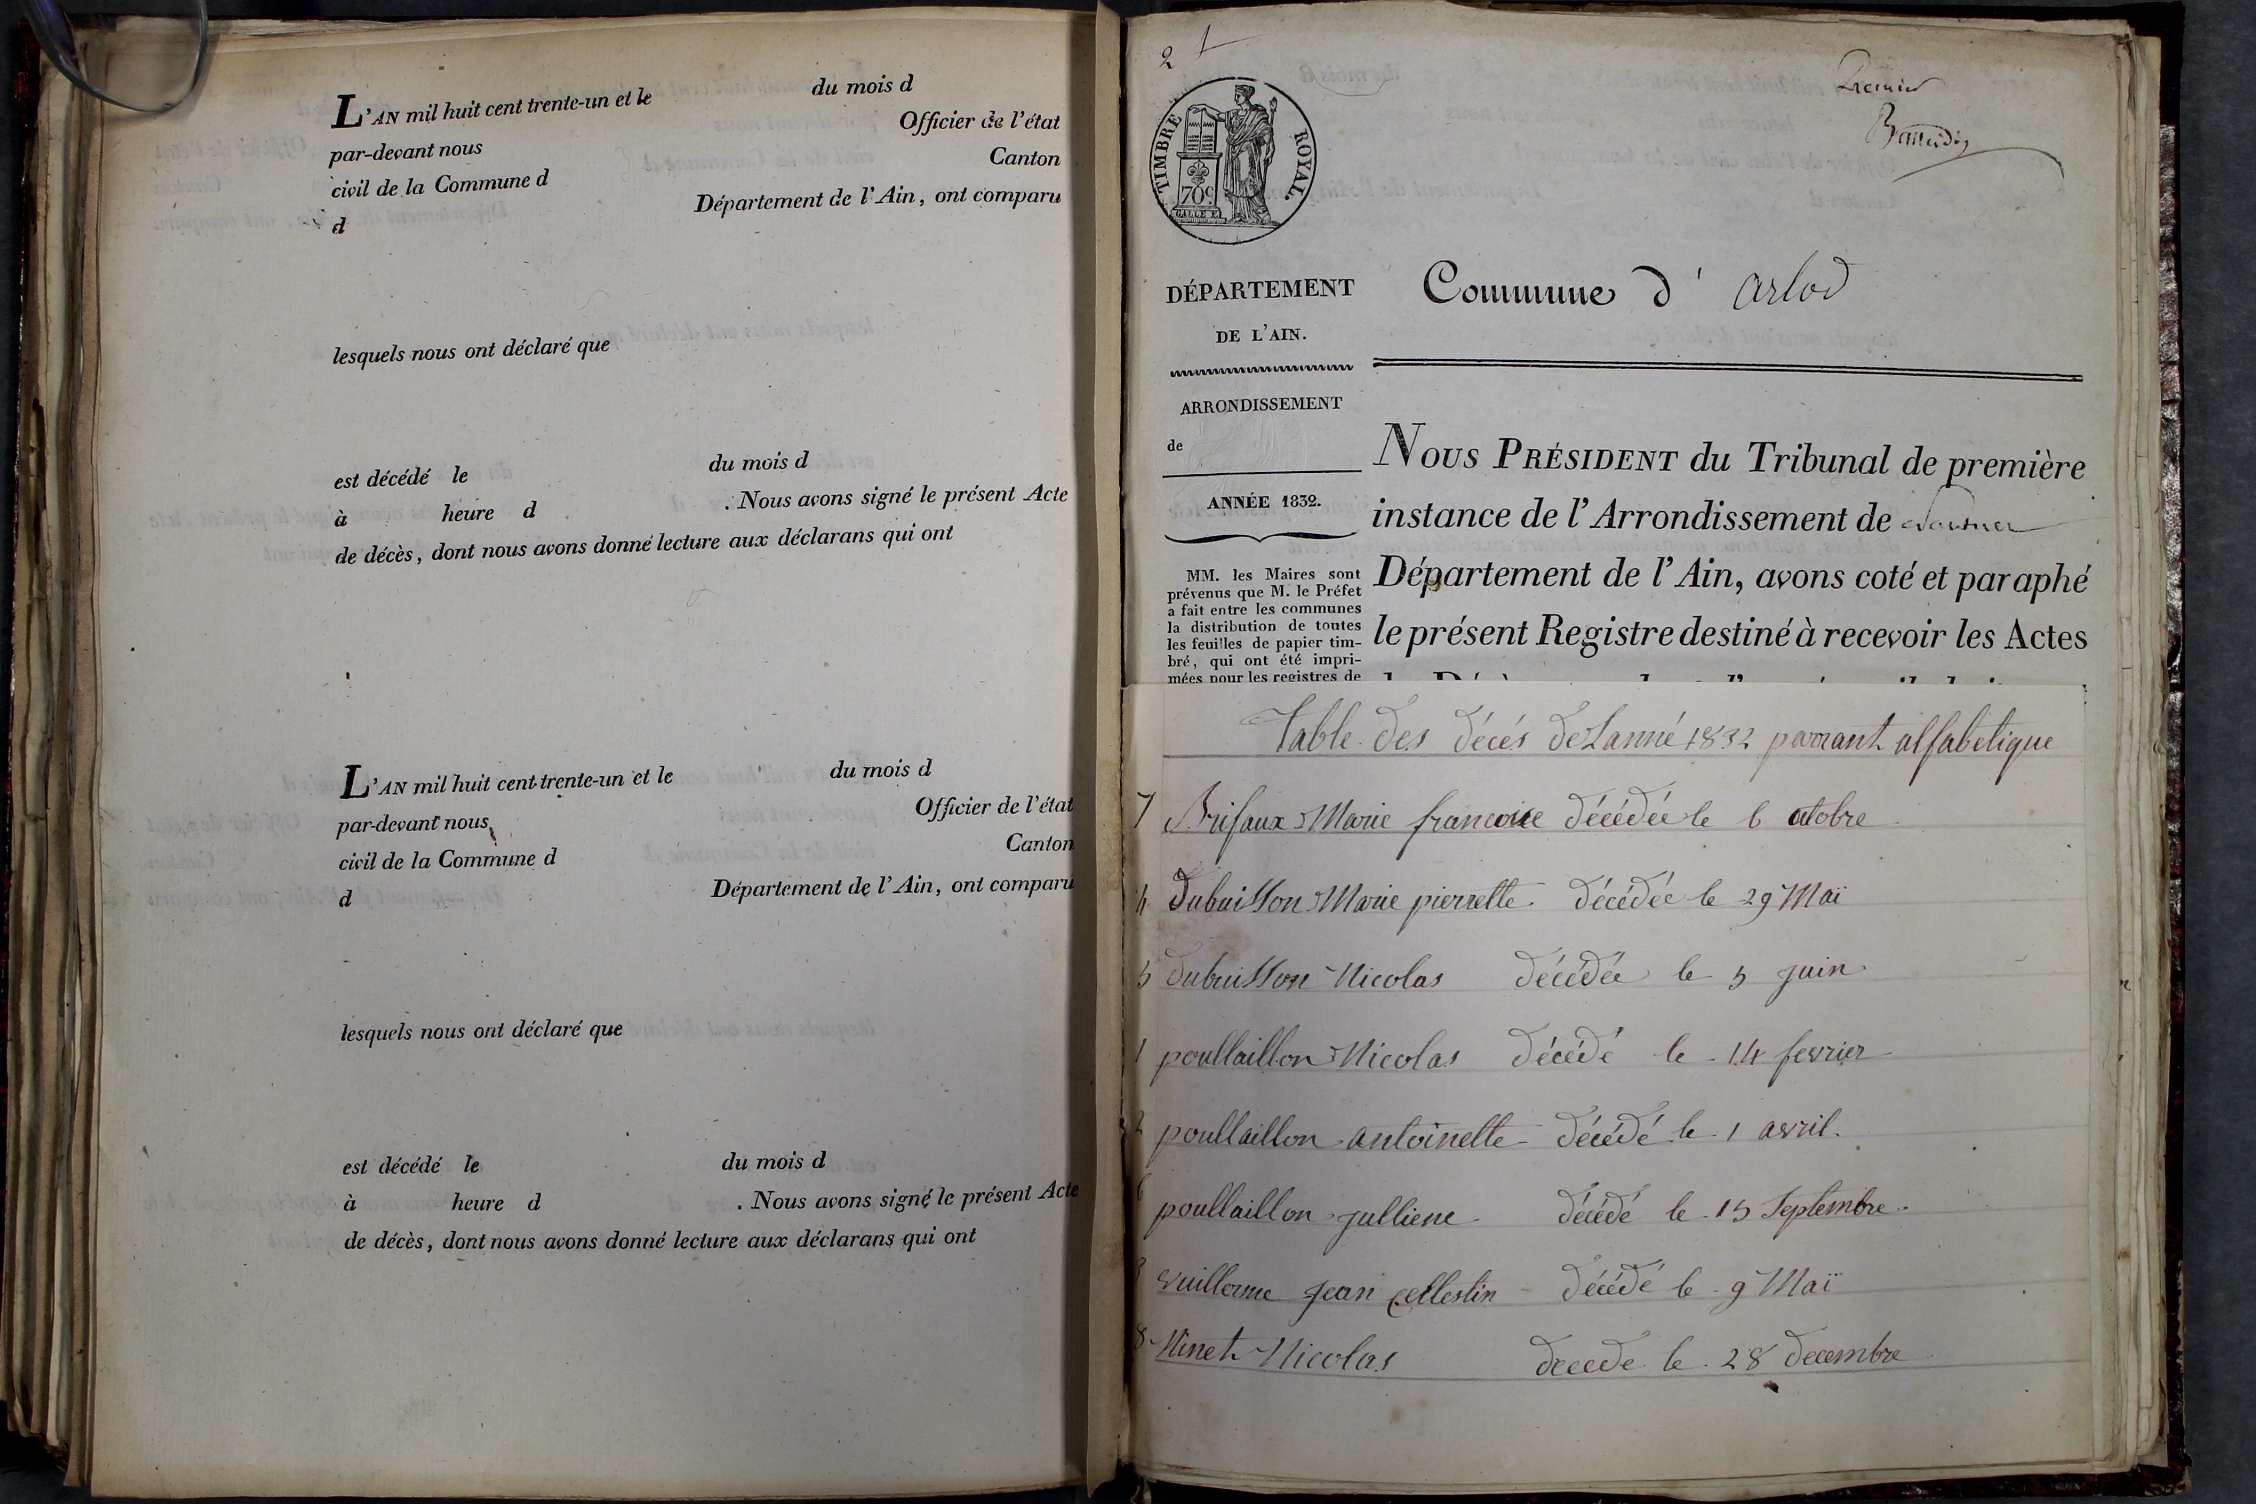 L'AN mil huit cent trente-un et le du mois d
par-devant nous Officier de l'état
civil de la Commune d Canton
d Département de l'Ain, ont comparu
lesquels nous ont déclaré que
est décédé le du mois d
à heure d . Nous avons signé le présent Acte
de décès, dont nous avons donné lecture aux déclarans qui ont
L'AN mil huit cent trente-un et le du mois d
par-devant nous Officier de l'état
civil de la Commune d Canton
d Département de l'Ain, ont comparu
lesquels nous ont déclaré que
est décédé le du mois d
à heure d . Nous avons signé le présent Acte
de décès, dont nous avons donné lecture aux déclarans qui ont
2 1
Premier
TIMBRE ROYAL.
70c
DÉPARTEMENT
DE L'AIN.
Commune d' arlod
ARRONDISSEMENT
de
ANNÉE 1832.
MM. les Maires sont
prévenus que M. le Préfet
a fait entre les communes
la distribution de toutes
les feuilles de papier tim-
bré, qui ont été impri-
mées pour les registres de
NOUS PRÉSIDENT du Tribunal de première
instance de l'Arrondissement de
Département de l'Ain, avons coté et paraphé
le présent Registre destiné à recevoir les Actes
Table des décés de Lanné 1832 parrant alfabetique
7 Brifaux Marie francoise décédée le 6 octobre
4 Dubuisson Marie pierrette décédée le 29 Maï
5 Dubuisson Nicolas décédée le 5 juin
1 poullaillon Nicolas décédé le 14 fevrier
2 poullaillon antoinette décédé le 1 avril.
6 poullaillon jullienne décédé le 15 Septembre
3 vuillerme jean cellestin décédé le 9 Maï
8 Ninet Nicolas decede le 28 decembre